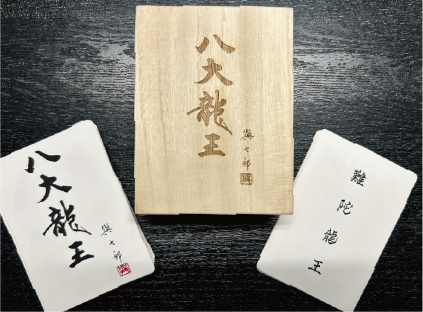 八大龍王
與七郎
八大龍王
與七郎
難陀龍王